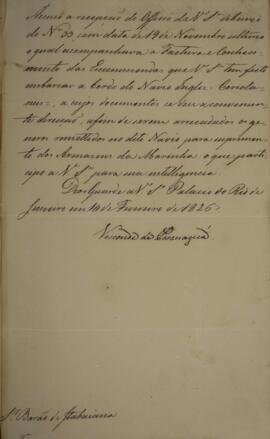 Accuso a recepção do Officio de V. Sª debaixo
de Nº 33 com data de 19 de Novembro ultimo
o qual acompanhava a Factura e Conheci-
mento das Encommendas que V. Sª tem feito
embarcar a bordo do Navio Inglez Coriola-
nus, a cujos documentos se deu a conveni-
ente direcção, afim de serem arrecadados os ge-
neros remettidos no dito Navio para suprimen-
to dos Armazens da Marinha o que parti-
cipo a V. Sª para sua intelligencia.
Deos Guarde a V. Sª Palacio do Rio de
Janeiro em 14 de Fevereiro de 1826.
Visconde de Paranaguá
Sr. Barão de Itabaiana